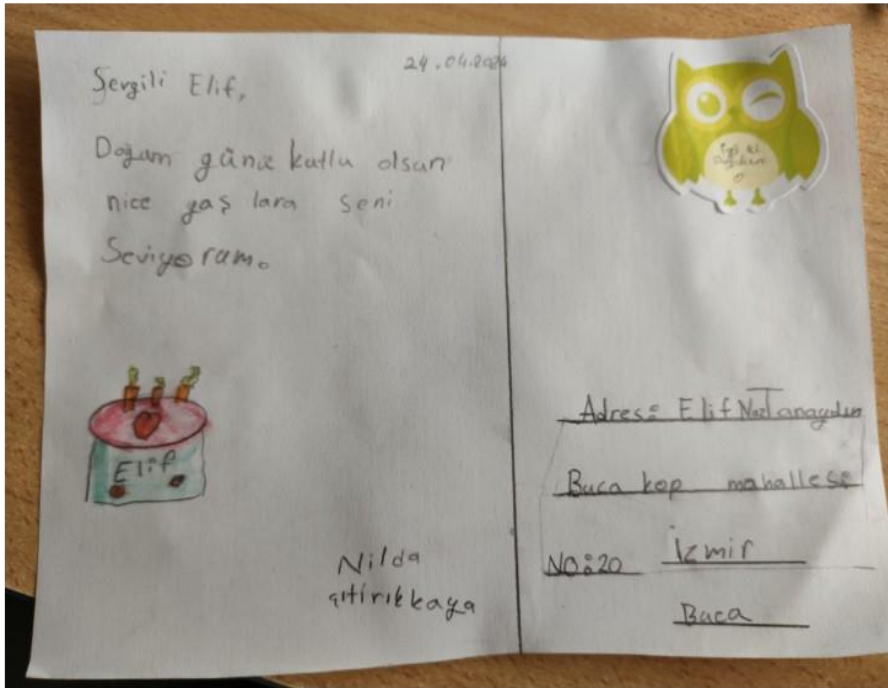 24.04.2024
Sevgili Elif,
Doğum günün kutlu olsun
nice yaş lara seni
Seviyorum.
İyi ki
Doğdun
Elif
Nilda
çıtırıkkaya
Adres: Elif Naz Tanaydın
Buca kop mahallesi
NO:20 İzmir
Buca